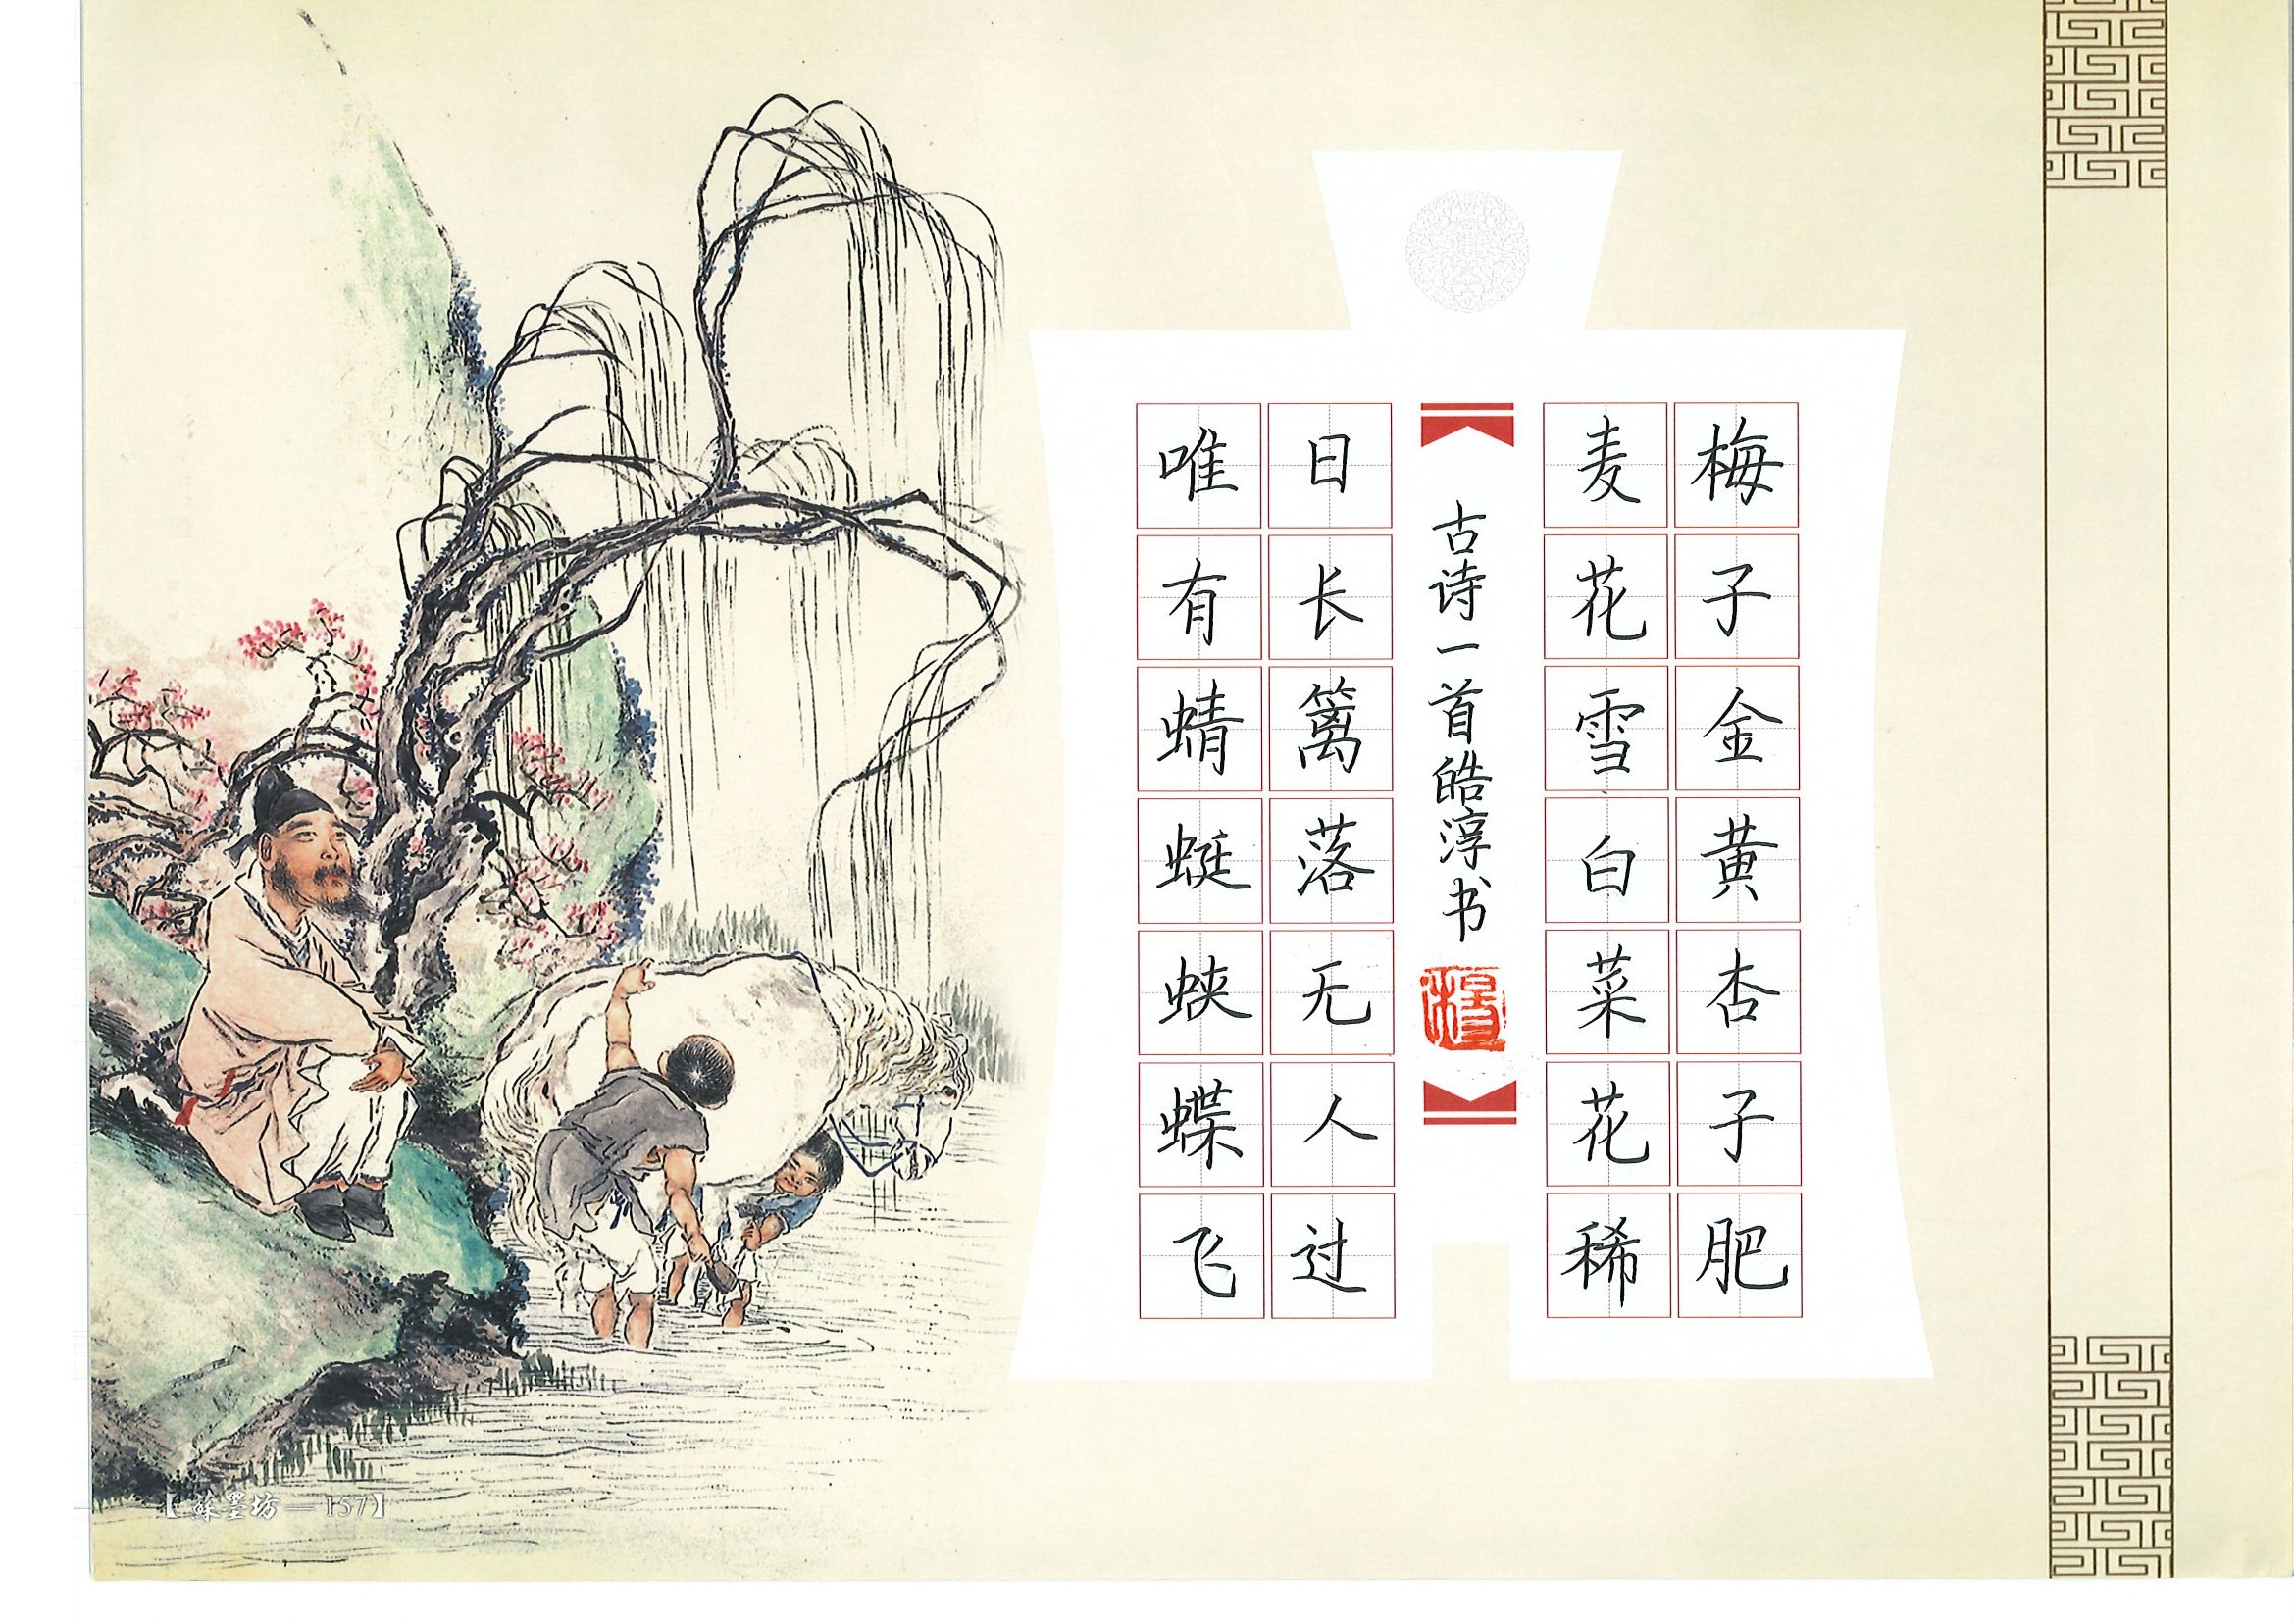 梅子金黄杏子肥
麦花雪白菜花稀
古诗一首皓淳书
日长篱落无人过
唯有蜻蜓蛱蝶飞
【蘇墨坊—157】